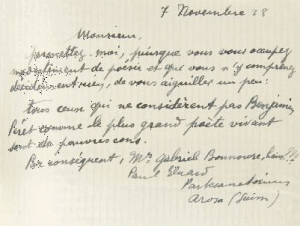 7 Novembre 28
Monsieur,
permettez-moi, puisque vous vous occupez
de poésie et que vous n'y comprenez
décidément rien, de vous aiguiller un peu:
tous ceux qui ne considèrent pas Benjamin
Péret comme le plus grand poète vivant
sont de pauvres cons.
Par conséquent, Mr Gabriel Bounoure,
Paul Eluard
Arosa (Suisse)